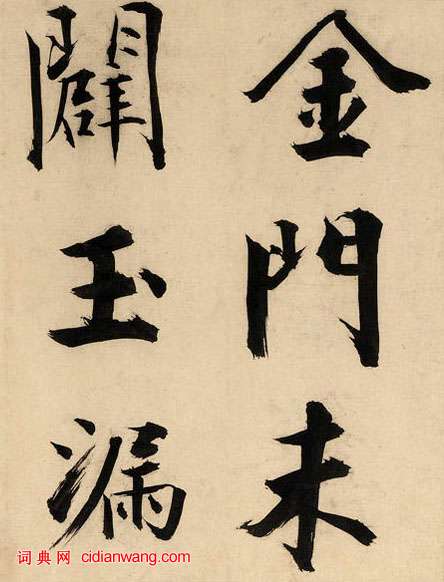 金門未
闢玉漏
词典网 cidianwang.com